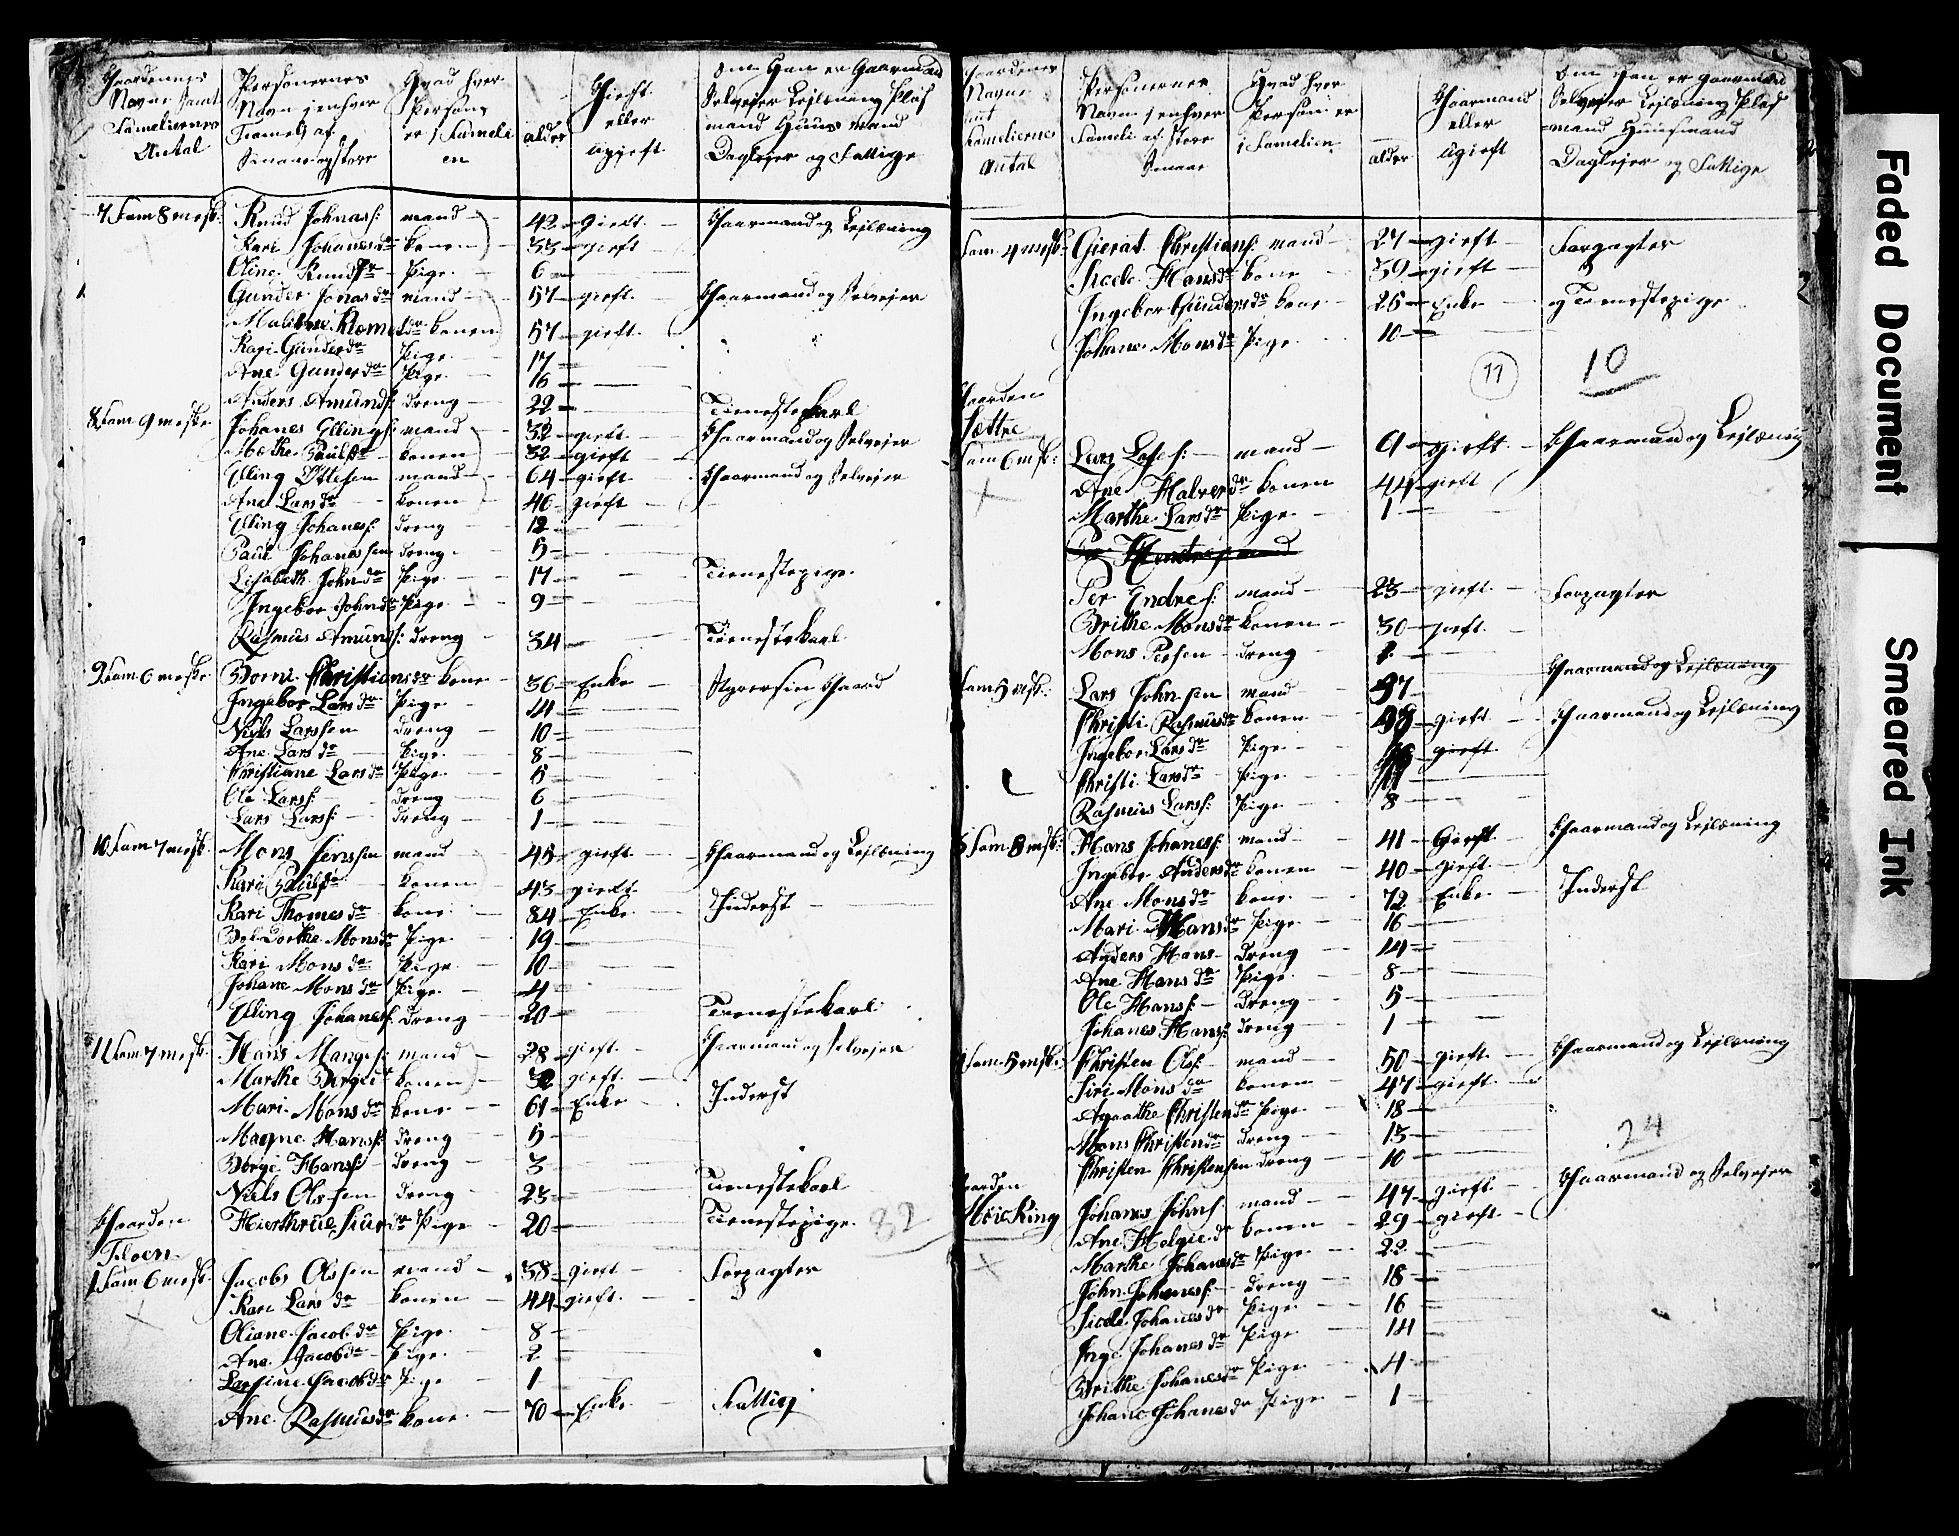 Gaardenes Navne samt Fameliernes Antal
Personernes Navn i enhver Fameli af Smaae og Store
Hvad hver Person er i Familien
alder
Gieft eller ugieft
Om Han er Gaarmand Selveier Lejlænding Plads mand Huusmand Daglejer og Fattige
7 Fam 8 mesk: Knud Johnas: mand 42 gieft Gaarmand og Lejlænding
Kari Johanesdr konen 33 gieft
Oline Knudsdr Pige 6
Gunder Jonasdr mand 57 gieft Gaarmand og Selvejer
konen 57 gieft
Kari Gunderdr Pige 17
Ane Gunderdr Pige 16
Anders Amunds: dreng 22 Tienestekarl
8 Fam 9 meske Johanes Ellings: mand 32 gieft Gaarmand og Selvejer
Marthe Paulsdr konen 32 gieft
Elling Ottesen mand 64 gieft Gaarmand og Selvejer
Ane Larsdr konen 46 gieft
Elling Johaness: dreng 12
Paul Johanessen dreng 5
Lisabeth Johndr Pige 17 Tienestepige
Ingebor Johndr Pige 9
Rasmus Amunds: dreng 34 Tienestekarl
9 Fam 6 meske Borni Christiansdr kone 36 Enke Styrer sin Gaard
Ingebor Larsdr Pige 14
Niels Larssen dreng 10
Ane Larsdr Pige 8
Christiane Larsdr Pige 5
Ole Larss: dreng 6
Lars Larss: dreng 1
10 Fam 7 mesk: Mons Jenssen mand 45 gieft Gaarmand og Lejlænding
Kari Paulsdr konen 43 gieft
Kari Thomesdr kone 84 Enke Inderst
Bol Dorthe Monsdr Pige 19
Kari Monsdr Pige 10
Johane Monsdr Pige 4
Elling Johanes: dreng 20 Tienestekarl
11 Fam 7 mesk: Hans Manges: mand 28 gieft Gaarmand og Selvejer
Marthe Børgedr konen 32 gieft
Mari Monsdr kone 61 Enke Inderst
Magne Hanss: dreng 5
Børge Hanss: dreng 3
Niels Olssen dreng 23 Tienestekarl
Gaarden Hierthrue Siurdr Pige 20 Tienestepige 82
Floen
1 Fam 6 mesk: Jacobs Olssen mand 38 gieft Forpagter
Kari Larsdr konen 44 gieft
Oliane Jacobdr Pige 8
Ane Jacobdr Pige 2
Larsine Jacobdr Pige 1
Ane Rasmusdr kone 70 Enke Fattig
Gaardenes Navne samt Fameliernes Antal
Personernes Navn i enhver Fameli af Store Smaae
Hvad hver Person er i Famelien
alder
Gaarmand eller ugieft
Om Han er Gaarmand Selvejer Lejlænding Plads mand Huusmand Daglejer og Fattige
Fam 4 mesk: Gierat Christians: mand 27 gieft Forpagter
Siede Hansdr kone 39 gieft
Ingebor Gundersdr kone 25 Enke og Tienestepige
Johane Monsdr Pige 10
11 10
Gaarden
Sættre
Fam 6 mesk: Lars Loses: mand 9 gieft Gaarmand og Lejlænding
Ane Halverdr konen 44 gieft
Marthe Larsdr Pige 1
Per Endres: mand 23 gieft Forpagter
Brithe Monsdr konen 30 gieft
Mons Persen dreng 1
Gaarmand og Lejlænding
Fam 5 mesk: Lars Johnsen mand 37
Christi Rasmusdr konen 38 gieft Gaarmand og Lejlænding
Ingebor Larsdr Pige gieft
Christi Larsdr Pige
Rasmus Larss: Pige 8
3 Fam 8 mesk: Hans Johaness: mand 41 Gieft Gaarmand og Lejlænding
Ingebor Andersdr konen 40 gieft
Ane Monsdr kone 72 Enke Inderst
Mari Hansdr Pige 16
Anders Hans dreng 14
Ane Hansdr Pige 8
Ole Hanss: dreng 5
Johanes Hans: dreng 1
Fam 5 mesk: Christen Ols: mand 50 gieft Gaarmand og Lejlænding
Siri Monsdr konen 47 gieft
Agaathe Christendr Pige 18
Mons Christendr dreng 13 24
Christen Christensen dreng 10
Gaarden
Johanes Johns: mand 47 gieft Gaarmand og Selvejer
Ane Helgiedr konen 29 gieft
Marthe Johanesdr Pige 22
John Johaness: dreng 18
Siede Johanesdr Pige 16
Inge Johanesdr Pige 14
Brithe Johanesdr Pige 4
Johane Johanesdr Pige 1
Faded Document
Smeared Ink